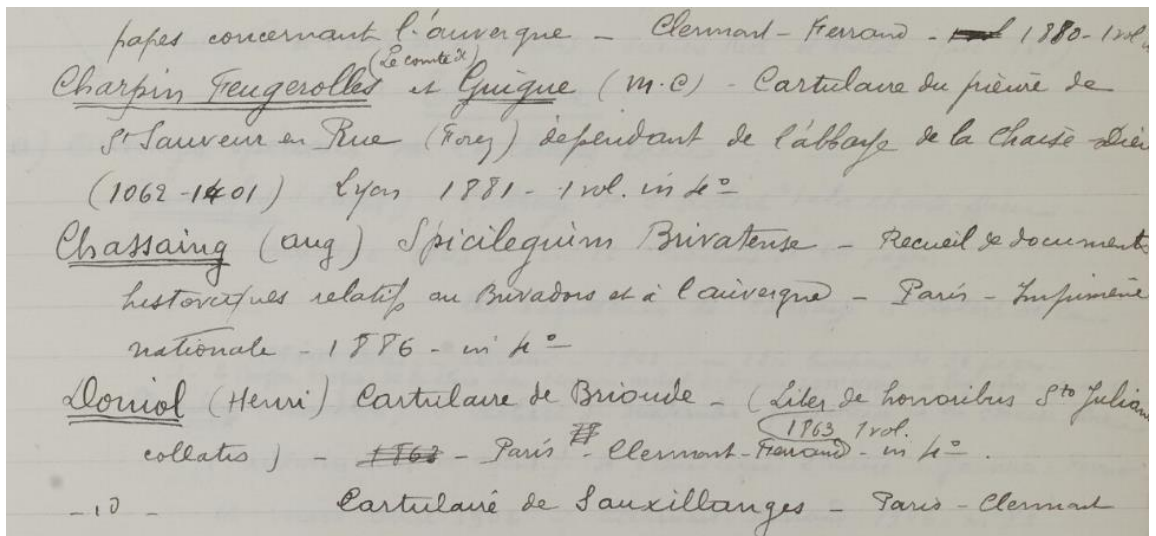 papes concernant l'auvergne - Clermont-Ferrand - 1880 - 1 vol
(Le comte de)
Charpin Feugerolles et Guigue (M.C) - Cartulaire du prieuré de
St Sauveur en Rue (Forez) dépendant de l'abbaye de la Chaise-Dieu
(1062-1401) Lyon 1881 - 1 vol. in 4°
Chassaing (Aug) Spicilegium Brivatense - Recueil de documents
historiques relatifs au Brivadois et à l'auvergne - Paris - Imprimerie
nationale - 1886 - in 4°
Doniol (Henri) Cartulaire de Brioude - (Liber de honoribus Sto Juliano
1863 1 vol.
collatis) - 1863 - Paris - Clermont-Ferrand - in 4°.
- id - Cartulaire de Sauxillanges - Paris - Clermont